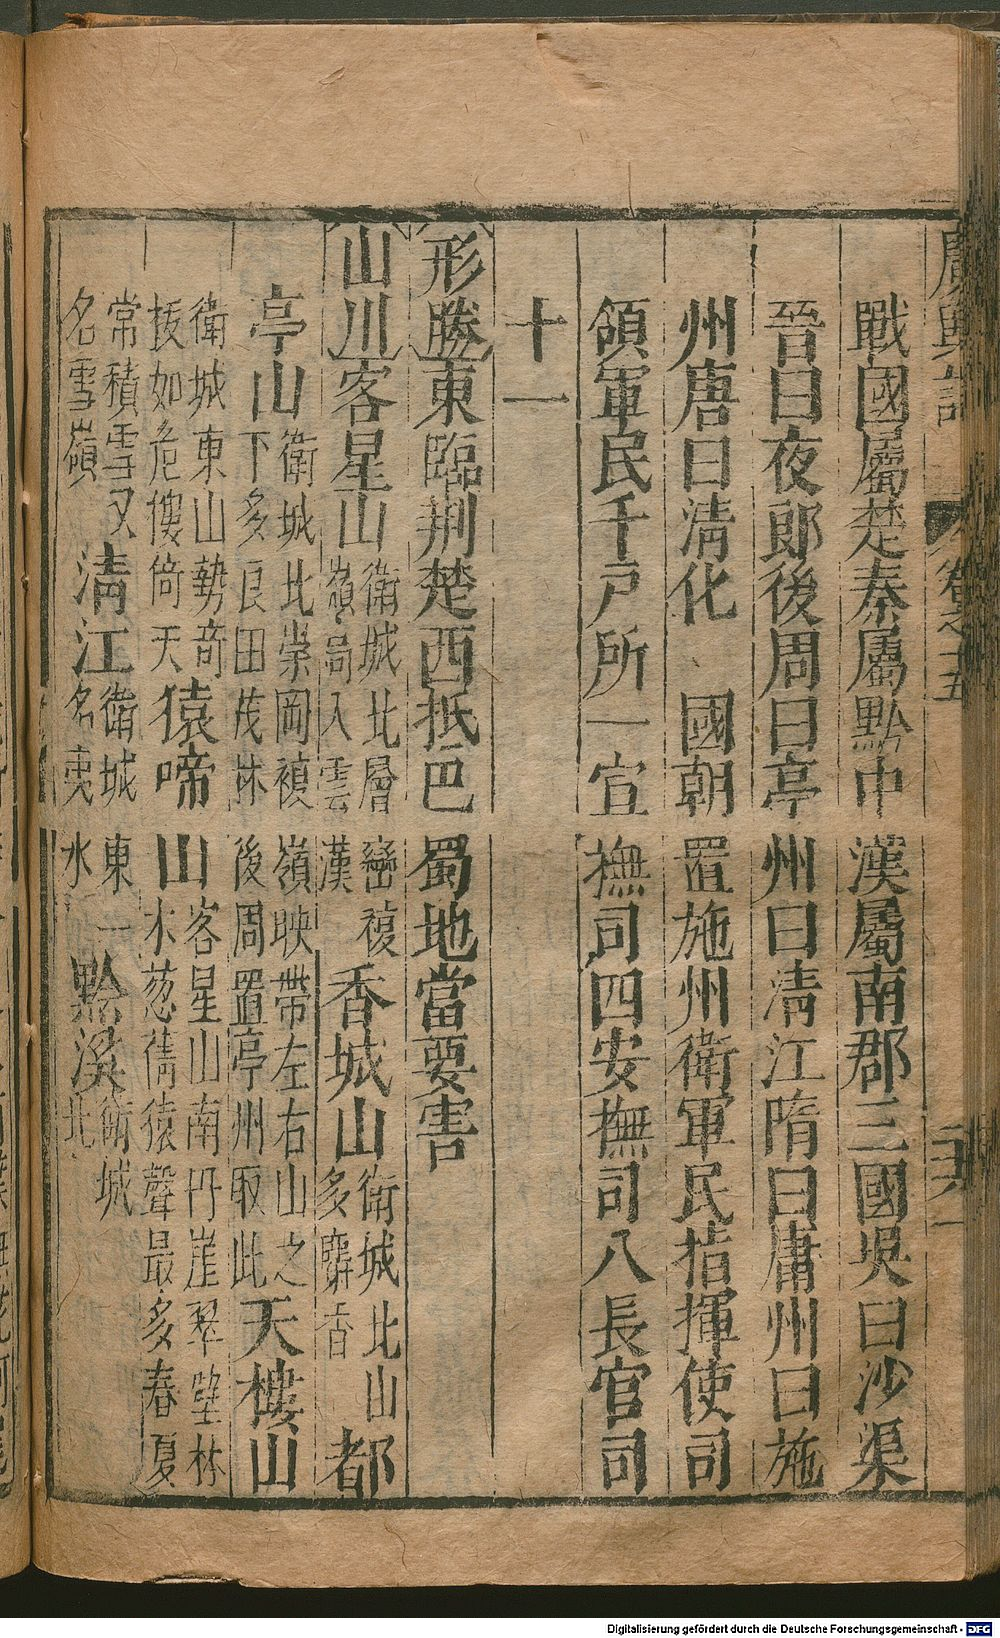 廣輿記 卷之十五
戰國屬楚秦屬黔中漢屬南郡三國吳曰沙渠
晉曰夜郎後周曰亭州曰清江隋曰庸州曰施
州唐曰清化 國朝置施州衛軍民指揮使司
領軍民千戶所一宣撫司四安撫司八長官司
十一
形勝東臨荆楚西抵巴蜀地當要害
山川客星山衛城北層巒複嶺高入雲漢香城山衛城北山多麝香都
亭山衛城北崇岡複嶺映帶左右山之下多良田茂林後周置亭州取此天樓山
衛城東山勢奇拔如危樓倚天猿啼山客星山南丹崖翠壁林木葱蒨猿聲最多春夏
常積雪又名雪嶺清江衛城東一名夷水黔溪衛城北
Digitalisierung gefördert durch die Deutsche Forschungsgemeinschaft - DFG